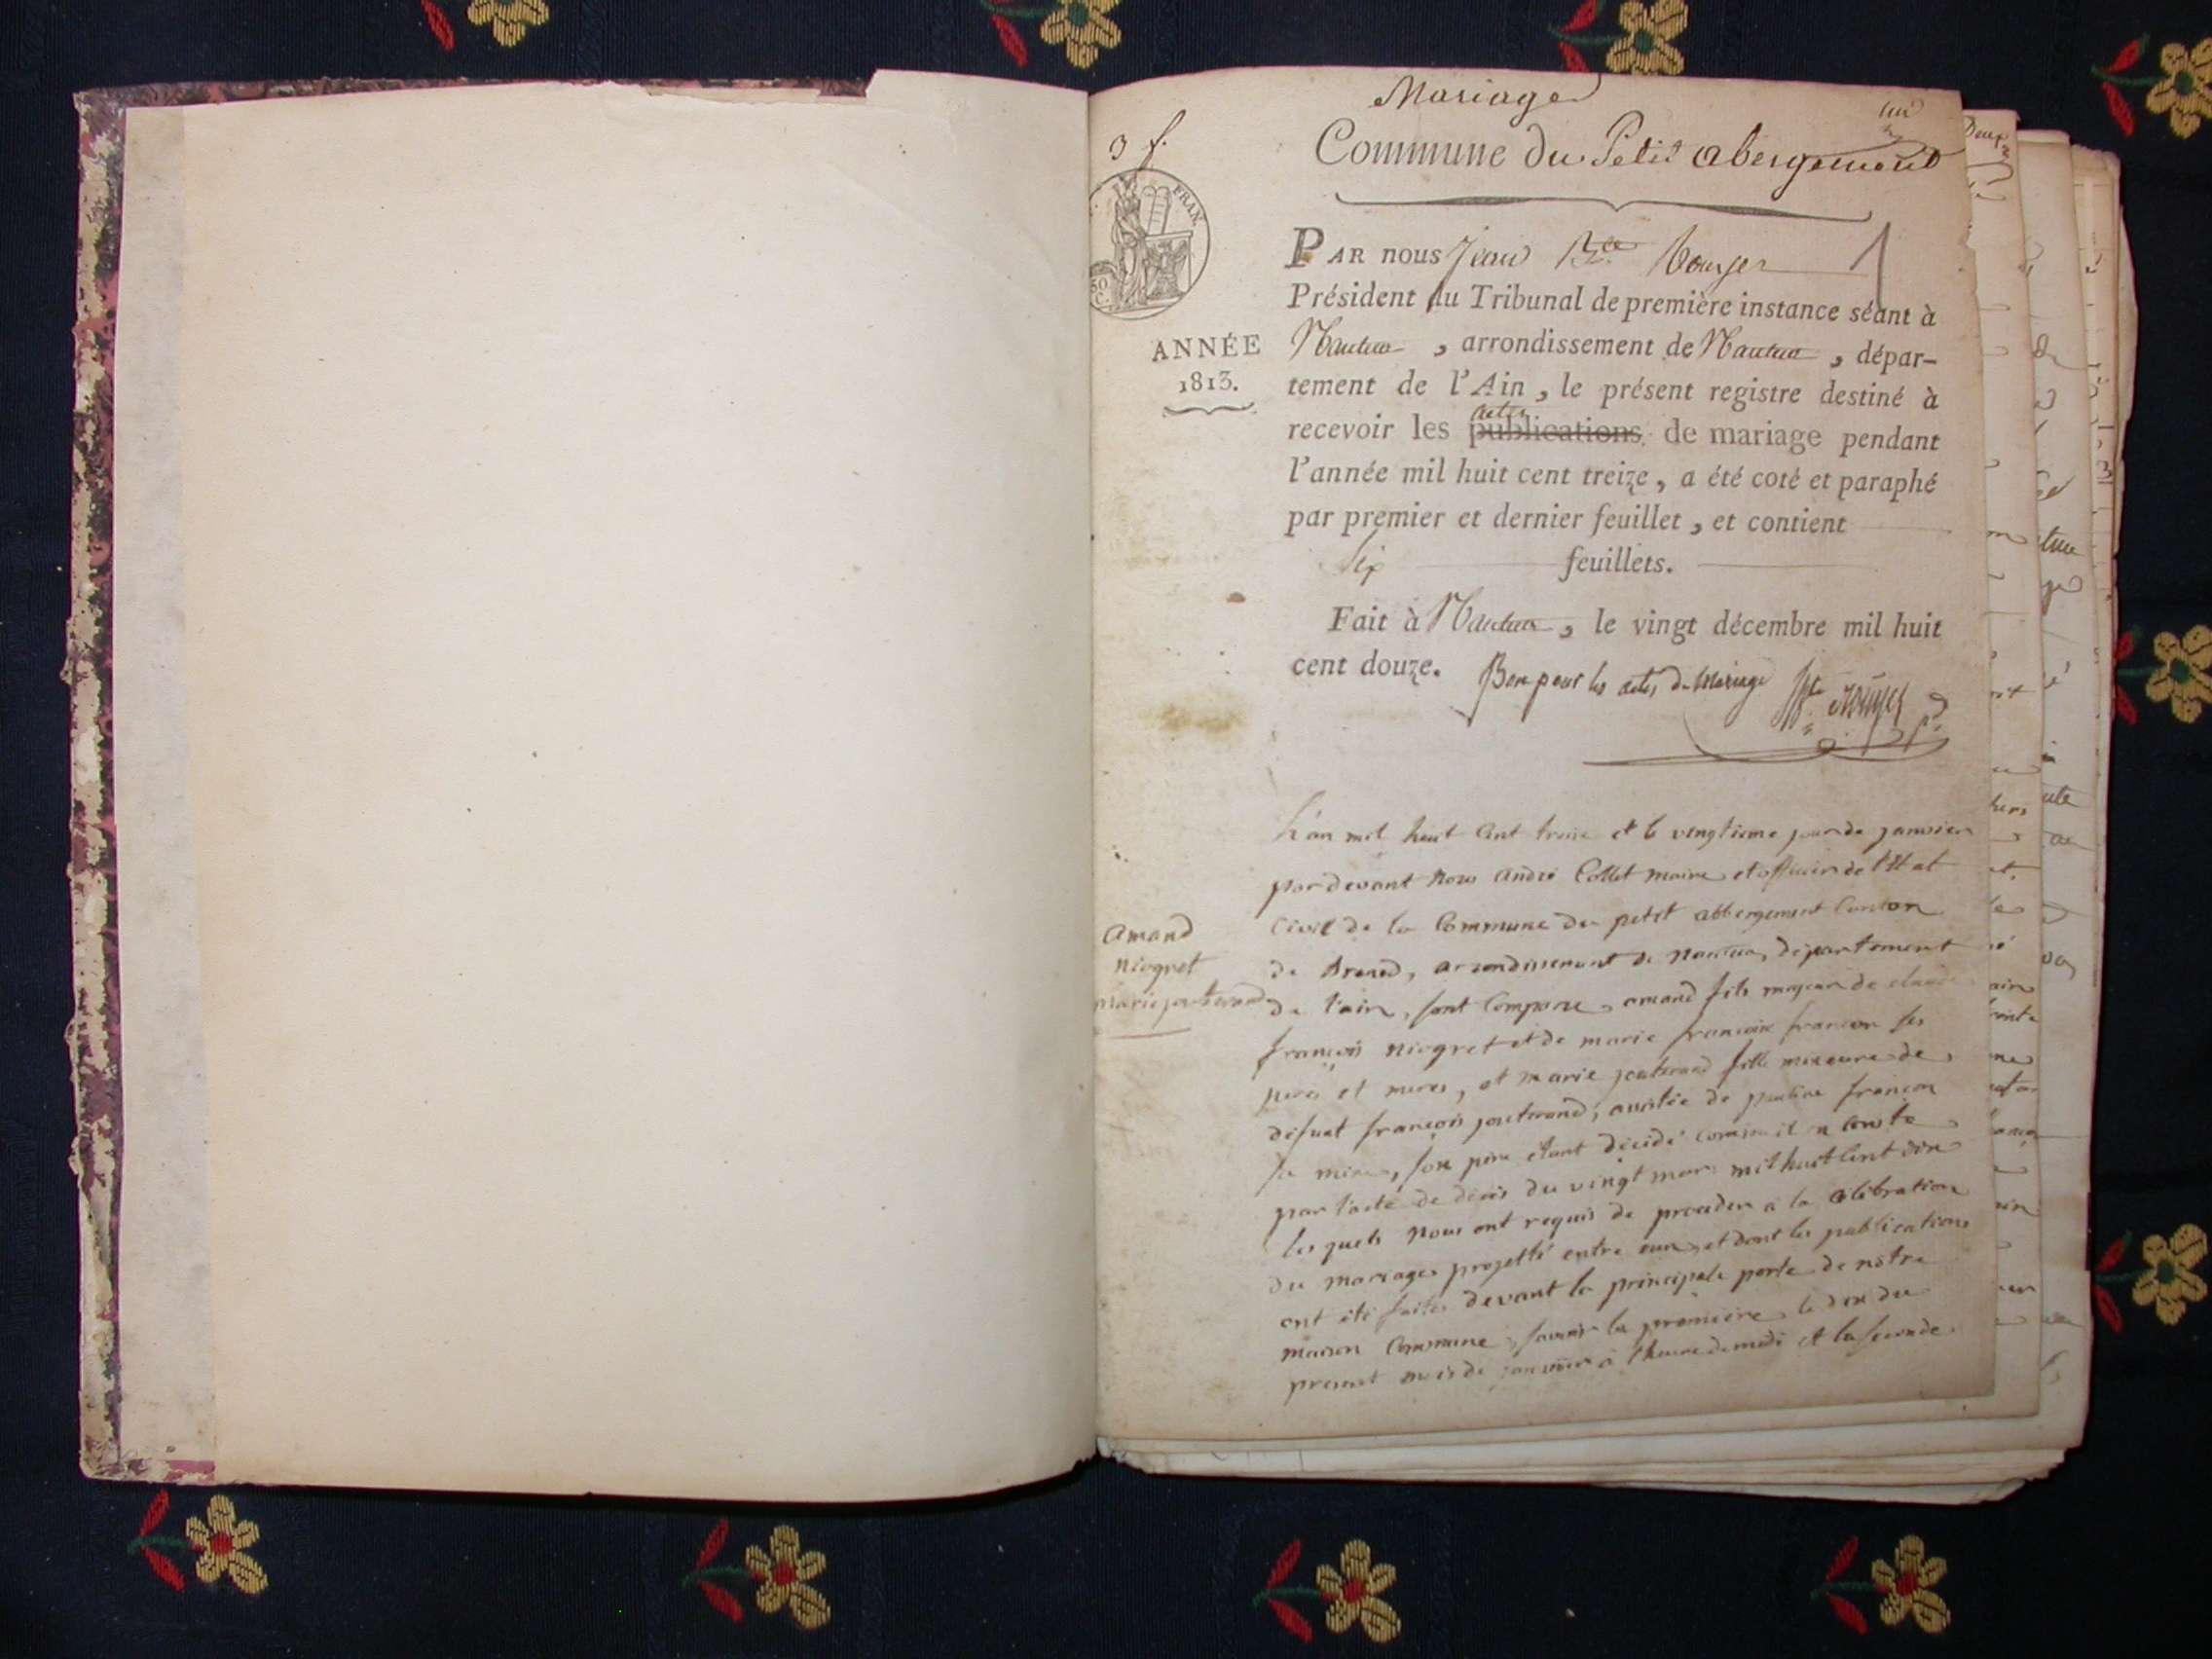 Mariage
un
3 f.
Commune du Petit abergement
FRAN.
50
C.
PAR NOUS Jean Bte
1
Président du Tribunal de première instance séant à
Nantua, arrondissement de Nantua, dépar-
ANNÉE
1813.
tement de l'Ain, le présent registre destiné à
actes
recevoir les publications de mariage pendant
l'année mil huit cent treize, a été coté et paraphé
par premier et dernier feuillet, et contient
Six feuillets.
Fait à Nantua, le vingt décembre mil huit
cent douze. Bon pour les actes de Mariage
L'an mil huit cent treize et le vingtieme jour de janvier
par devant nous andré Collet maire et officier de l'Etat
Civil de la Commune du petit abbergement Canton
de Brenod, arrondissement de nantua, département
amand
niogret
marie joutterand
de l'ain, sont comparu amand fils majeur de claude
françois niogret et de marie françoise françon ses
peres et meres, et marie joutterand fille mineure de
défunt françois joutterand, assistée de françon
sa mere, son pere étant décidé comme il conste
par l'acte de décés du vingt mars mil huit cent
les quels nous ont requis de proceder a la célébration
du mariage projetté entre eux, et dont les publications
ont été faites devant la principale porte de notre
maison Commune, savoir la premiere le dix du
present mois de janvier a l'heure de midi et la seconde